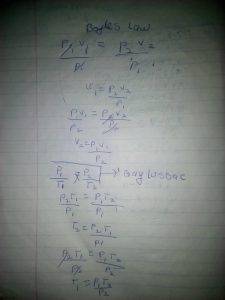 Boyles Law
P₁V₁/P₁ = P₂V₂/P₁
V₁ = P₂V₂/P₁
P₁V₁/P₂ = P₂V₂/P₂
V₂ = P₁V₁/P₂
P₁/T₁ = P₂/T₂ →
P₂T₁/P₁ = P₁T₂/P₁
T₂ = P₂T₁/P₁
P₂T₁/P₂ = P₁T₂/P₂
T₁ = P₁T₂/P₂